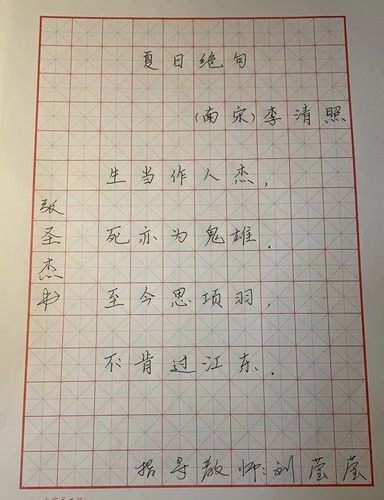 夏日绝句
(南宋)李清照
生当作人杰,
死亦为鬼雄.
至今思项羽,
不肯过江东.
张圣杰书
指导教师:刘莹莹